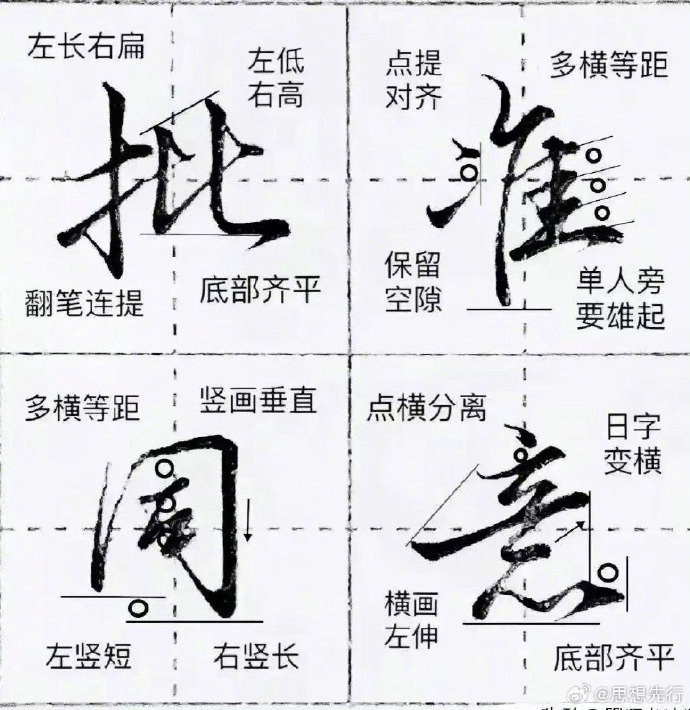 左长右扁
左低
右高
批
翻笔连提
底部齐平
点提
对齐
多横等距
准
保留
空隙
单人旁
要雄起
多横等距
竖画垂直
周
左竖短
右竖长
点横分离
日字
变横
意
横画
左伸
底部齐平
@思想先行